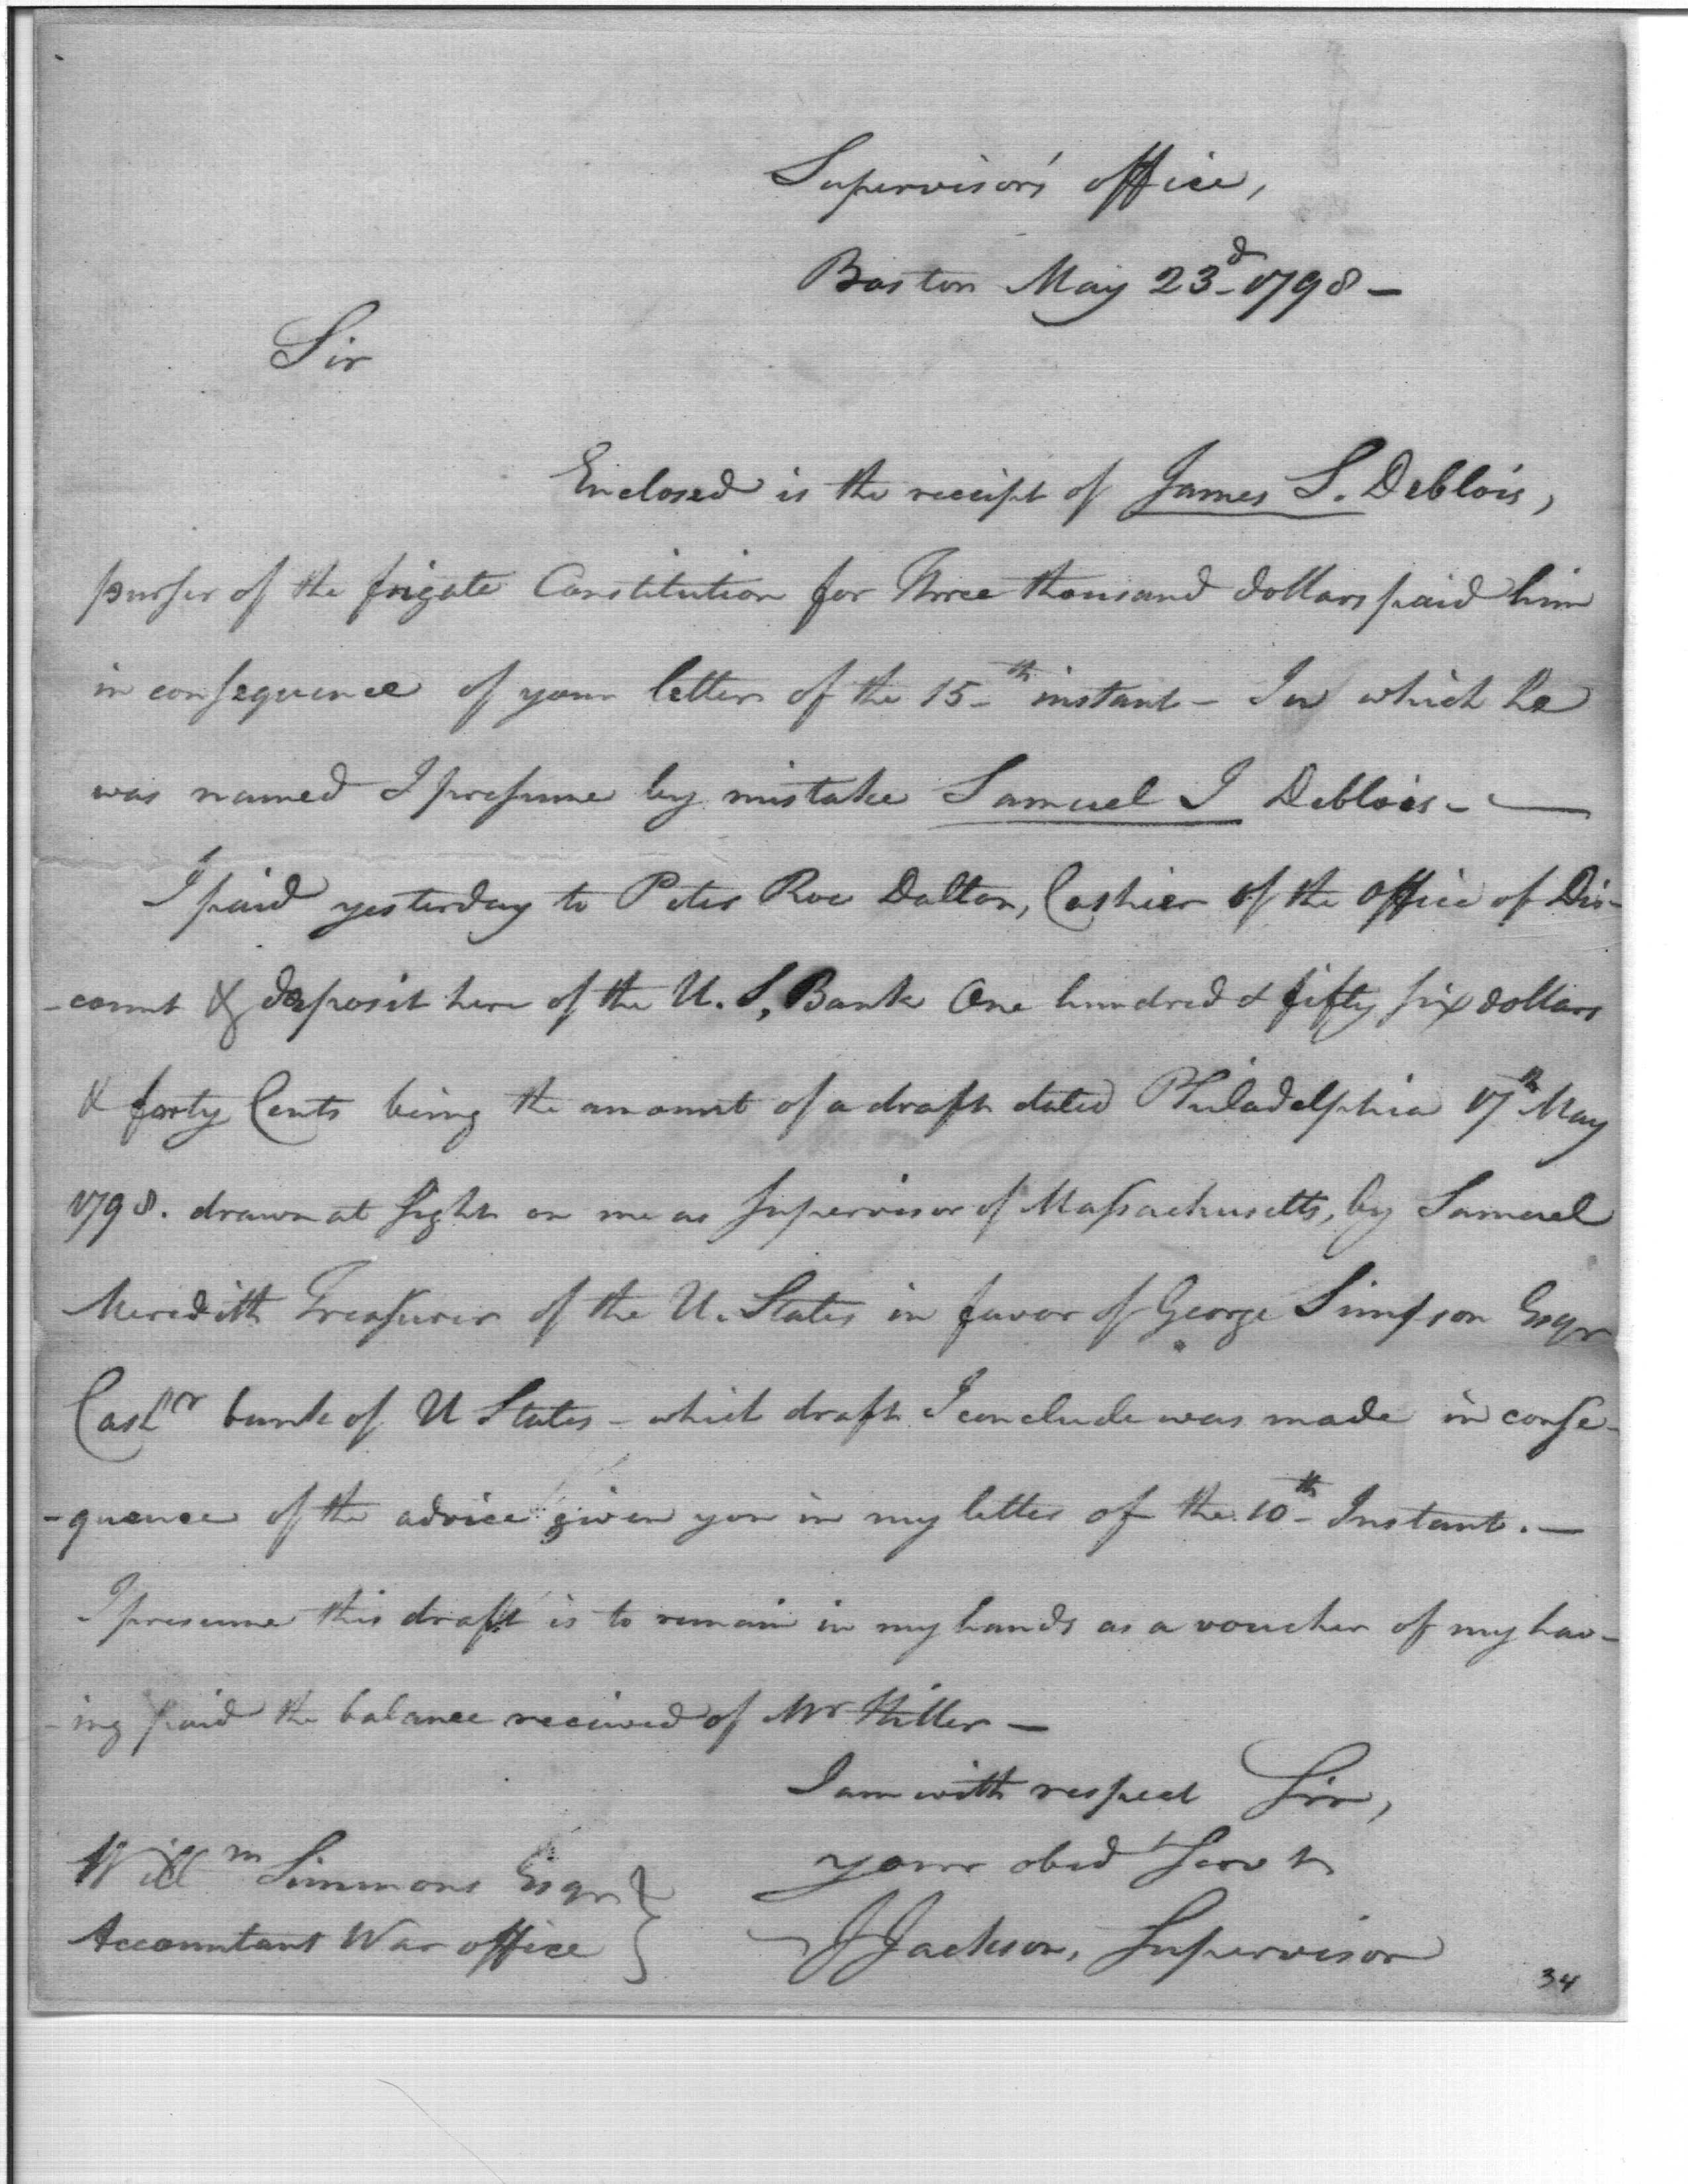 Supervisor's office,
Boston May 23d 1798 -
Sir
Enclosed is the receipt of James S. Deblois,
purser of the frigate Constitution for Three thousand dollars paid him
in consequence of your letter of the 15th instant - In which he
was named I presume by mistake Samuel J Deblois -
I paid yesterday to Peter Roe Dalton, Cashier of the office of Dis-
-count & deposit here of the U. S, Bank One hundred & fifty six dollars
& forty Cents being the amount of a draft dated Philadelphia 17th May
1798. drawn at sight on me as supervisor of Massachusetts, by Samuel
Meredith Treasurer of the U. States in favor of George Simpson Esqr
Cashr bank of U States - which draft I conclude was made in conse-
-quence of the advice given you in my letter of the 10th Instant. -
I presume this draft is to remain in my hands as a voucher of my hav-
-ing paid the balance received of Mr Hiller -
I am with respect Sir,
your obed Servt
J Jackson, Supervisor
Willm Simmons Esqr
Accountant War office
34